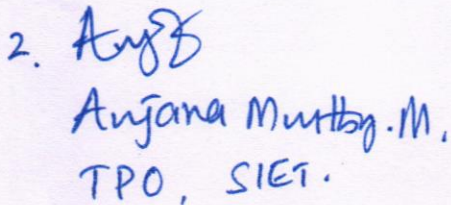 2.
Anjana Murthy.M.
TPO, SIET.